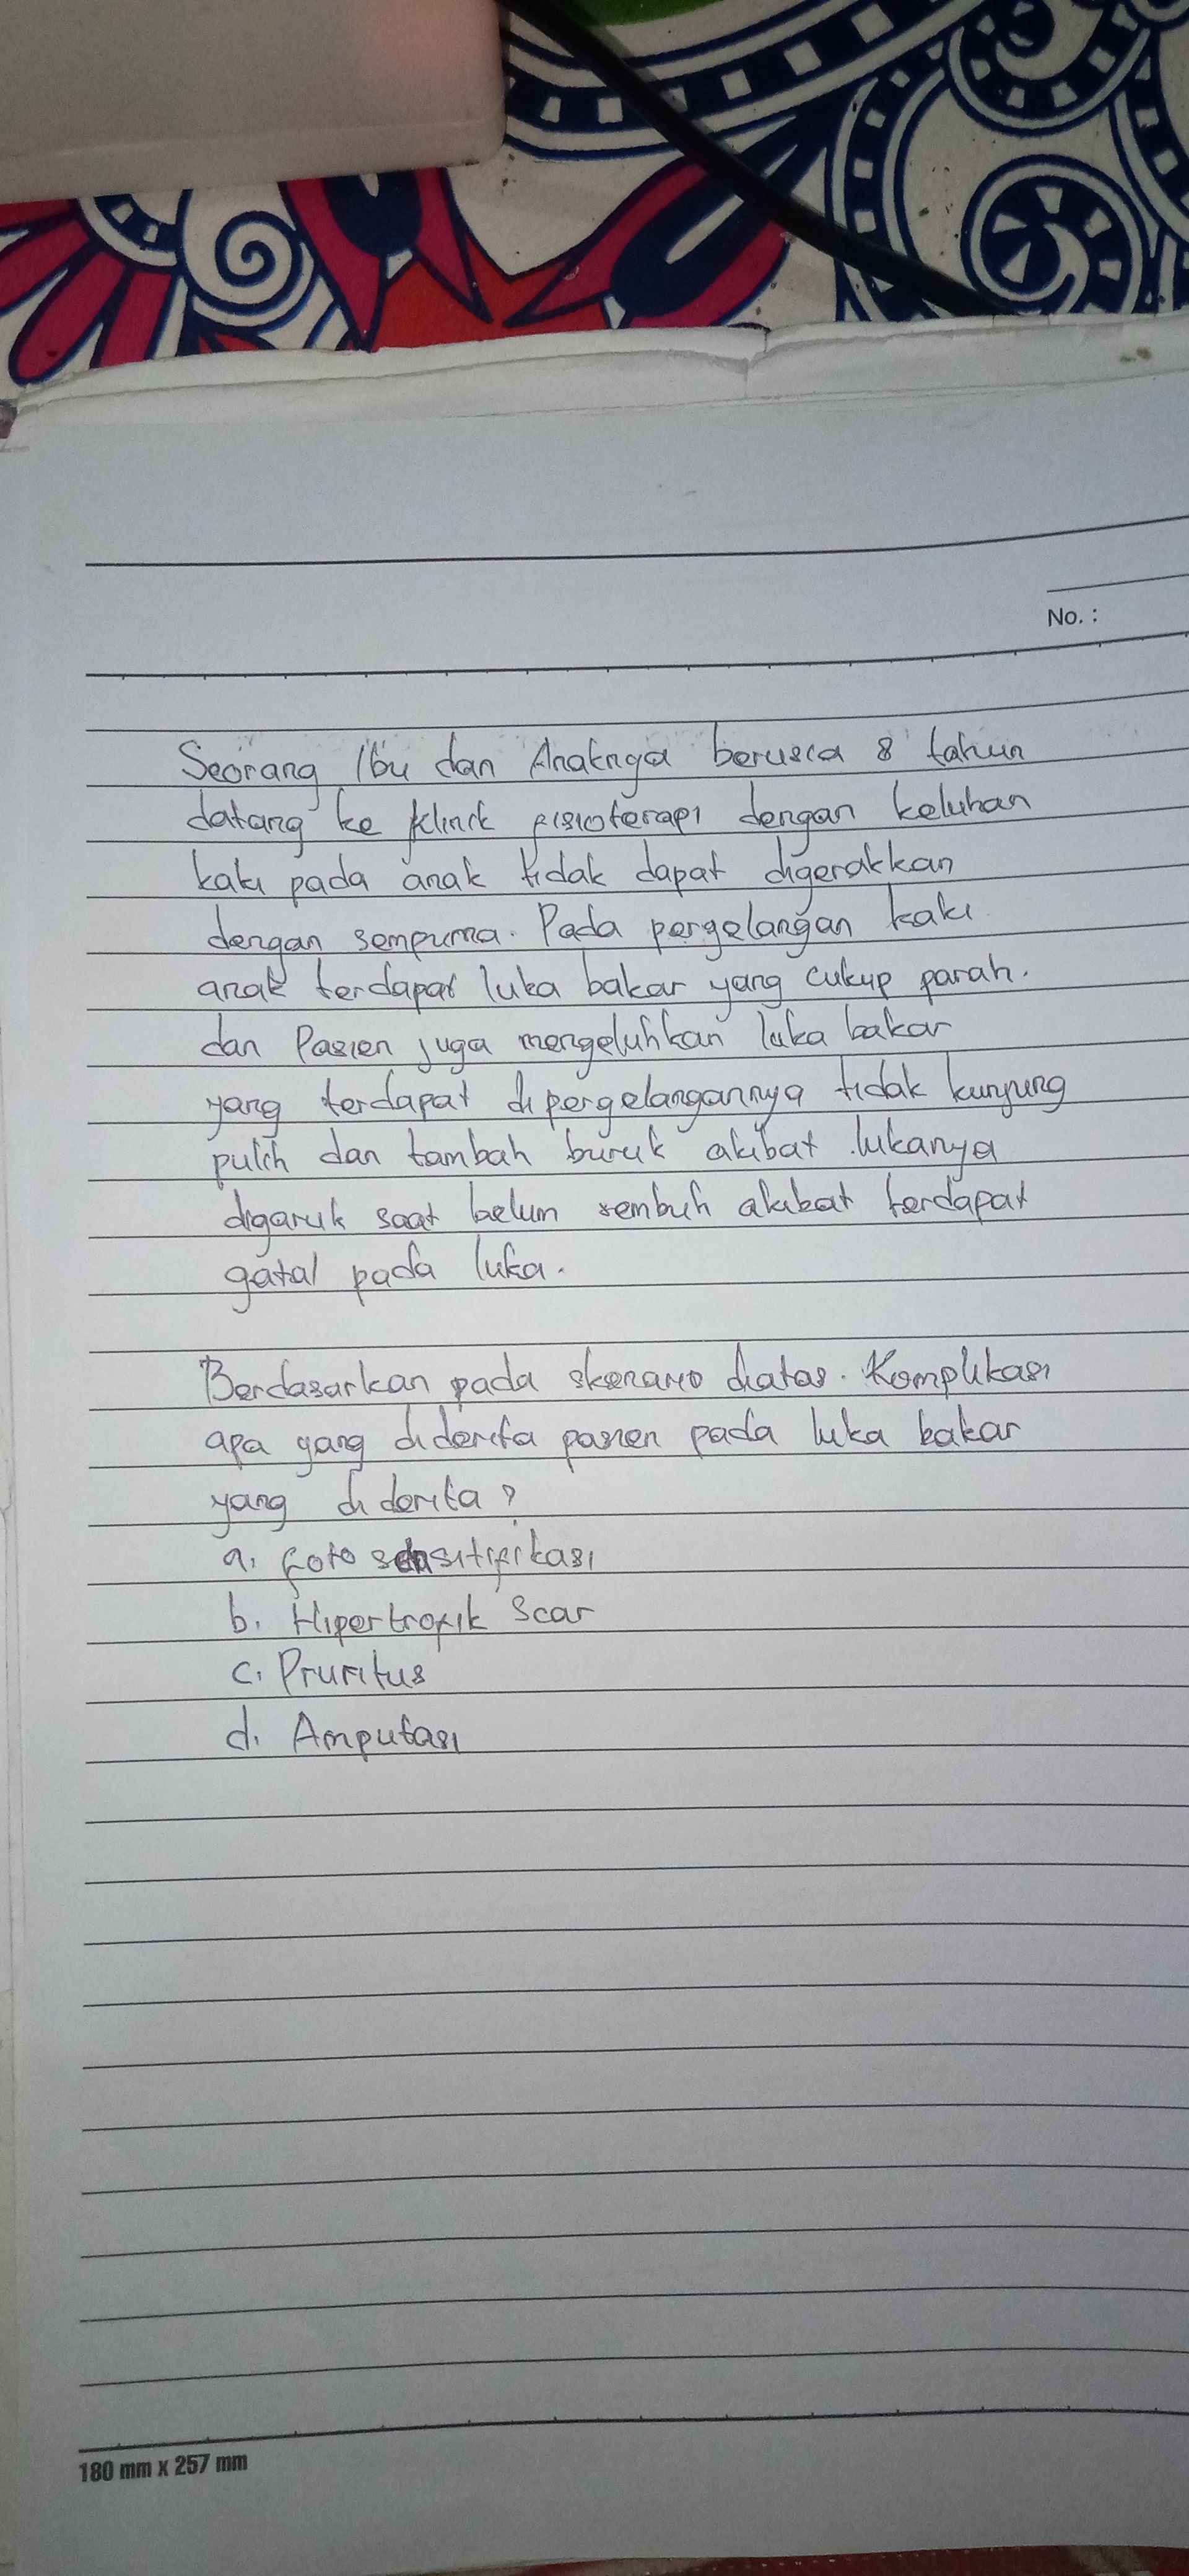 No. :
Seorang Ibu dan Anaknya berusia 8 tahun
datang ke klinik fisioterapi dengan keluhan
kaki pada anak tidak dapat digerakkan
dengan sempurna. Pada pergelangan kaki
anak terdapat luka bakar yang cukup parah.
dan Pasien juga mengeluhkan luka bakar
yang terdapat dipergelangannya tidak kunjung
pulih dan tambah buruk akibat lukanya
digaruk saat belum sembuh akibat terdapat
gatal pada luka.
Berdasarkan pada skenario diatas. Komplikasi
apa yang diderita pasien pada luka bakar
yang diderita?
a. Foto sensitifikasi
b. Hipertrofik Scar
c. Pruritus
d. Amputasi
180 mm x 257 mm